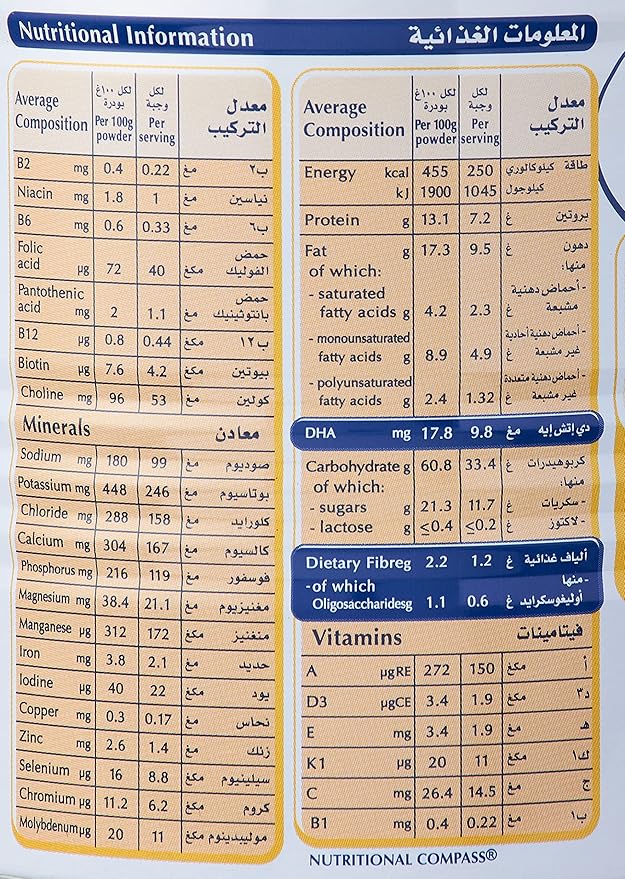 Nutritional Information المعلومات الغذائية
Average Composition لكل ١٠٠غ بودرة Per 100g powder لكل وجبة Per serving معدل التركيب
B2 mg 0.4 0.22 مغ ب٢
Niacin mg 1.8 1 مغ نياسين
B6 mg 0.6 0.33 مغ ب٦
Folic acid µg 72 40 مكغ حمض الفوليك
Pantothenic acid mg 2 1.1 مغ حمض بانتوثينيك
B12 µg 0.8 0.44 مكغ ب١٢
Biotin µg 7.6 4.2 مكغ بيوتين
Choline mg 96 53 مغ كولين
Minerals معادن
Sodium mg 180 99 مغ صوديوم
Potassium mg 448 246 مغ بوتاسيوم
Chloride mg 288 158 مغ كلورايد
Calcium mg 304 167 مغ كالسيوم
Phosphorus mg 216 119 مغ فوسفور
Magnesium mg 38.4 21.1 مغ مغنيزيوم
Manganese µg 312 172 مكغ منغنيز
Iron mg 3.8 2.1 مغ حديد
Iodine µg 40 22 مكغ يود
Copper mg 0.3 0.17 مغ نحاس
Zinc mg 2.6 1.4 مغ زنك
Selenium µg 16 8.8 مكغ سيلينيوم
Chromium µg 11.2 6.2 مكغ كروم
Molybdenum µg 20 11 مكغ موليبدينوم
Average Composition لكل ١٠٠غ بودرة Per 100g powder لكل وجبة Per serving معدل التركيب
Energy kcal 455 250 كيلوكالوري طاقة
kJ 1900 1045 كيلوجول
Protein g 13.1 7.2 غ بروتين
Fat g 17.3 9.5 غ دهون
of which: منها:
- saturated - أحماض دهنية
fatty acids g 4.2 2.3 غ مشبعة
- monounsaturated - أحماض دهنية أحادية
fatty acids g 8.9 4.9 غ غير مشبعة
- polyunsaturated - أحماض دهنية متعددة
fatty acids g 2.4 1.32 غ غير مشبعة
DHA mg 17.8 9.8 مغ دي إتش إيه
Carbohydrate g 60.8 33.4 غ كربوهيدرات
of which: منها:
- sugars g 21.3 11.7 غ - سكريات
- lactose g ≤0.4 ≤0.2 غ - لاكتوز
Dietary Fibre g 2.2 1.2 غ ألياف غذائية
-of which -منها
Oligosaccharides g 1.1 0.6 غ أوليغوسكرايد
Vitamins فيتامينات
A µgRE 272 150 مكغ أ
D3 µgCE 3.4 1.9 مكغ د٣
E mg 3.4 1.9 مغ هـ
K1 µg 20 11 مكغ ك١
C mg 26.4 14.5 مغ ج
B1 mg 0.4 0.22 مغ ب١
NUTRITIONAL COMPASS®